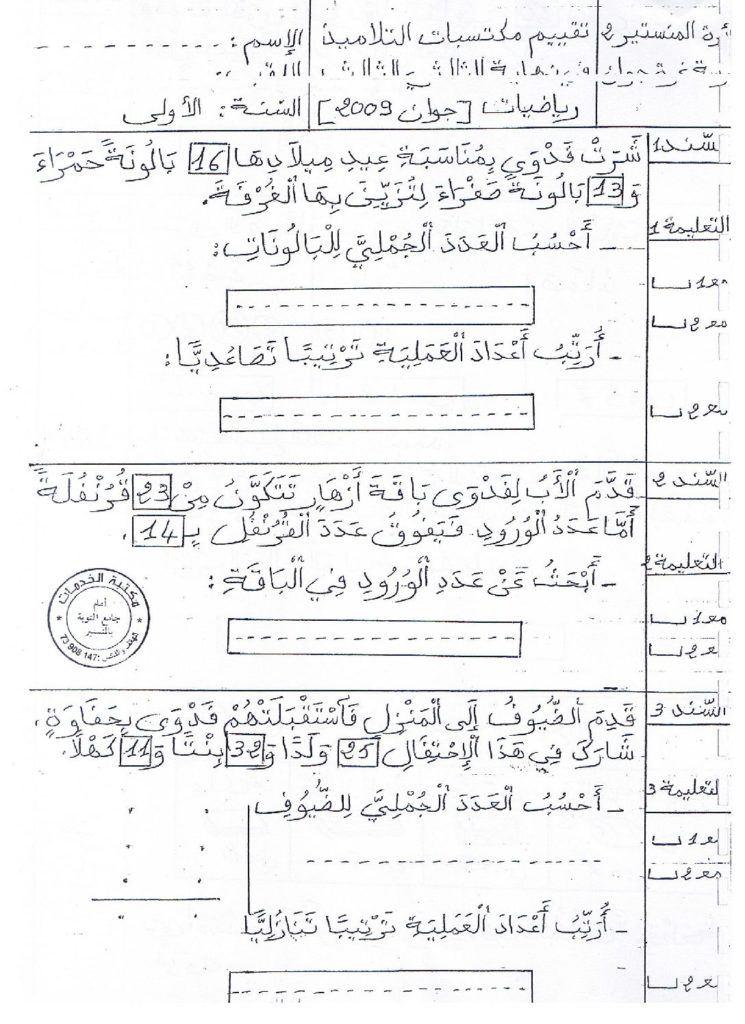 ئرة المنستير 2 تقييم مكتسبات التلاميذ الإسم :
رياضيات [جوان 2009] السّنة : الأولى
سّند 1
شَرَتْ فَدْوَى بِمُنَاسَبَةِ عِيدِ مِيلَادِهَا 16 بَالُونَةً حَمْرَاءَ
وَ 13 بَالُونَةً صَفْرَاءَ لِتُزَيِّنَ بِهَا الْغُرْفَةَ.
التعليمة 1
- أَحْسُبُ الْعَدَدَ الْجُمْلِيَّ لِلْبَالُونَاتِ:
مع 1
مع 2
- أُرَتِّبُ أَعْدَادَ الْعَمَلِيَّةِ تَرْتِيبًا تَصَاعُدِيًّا :
مع 2
السّند 2
قَدَّمَ الْأَبُ لِفَدْوَى بَاقَةَ أَزْهَارٍ تَتَكَوَّنُ مِنْ 23 قُرُنْفُلَةً
أَمَّا عَدَدُ الْوُرُودِ فَيَفُوقُ عَدَدَ الْقُرُنْفُلِ بِـ 14 .
التعليمة 2
- أَبْحَثُ عَنْ عَدَدِ الْوُرُودِ فِي الْبَاقَةِ :
مع 1
مع 2
مكتبة الخدمات
أمام
جامع التوبة
73 908 147
السّند 3
قَدِمَ الضُّيُوفُ إِلَى الْمَنْزِلِ فَاسْتَقْبَلَتْهُمْ فَدْوَى بِحَفَاوَةٍ.
شَارَكَ فِي هَذَا الْإِحْتِفَالِ 25 وَلَدًا وَ 32 بِنْتًا وَ 11 كَهْلًا.
لتعليمة 3
- أَحْسُبُ الْعَدَدَ الْجُمْلِيَّ لِلضُّيُوفِ
مع 1
مع 2
- أُرَتِّبُ أَعْدَادَ الْعَمَلِيَّةِ تَرْتِيبًا تَنَازُلِيًّا
مع 2